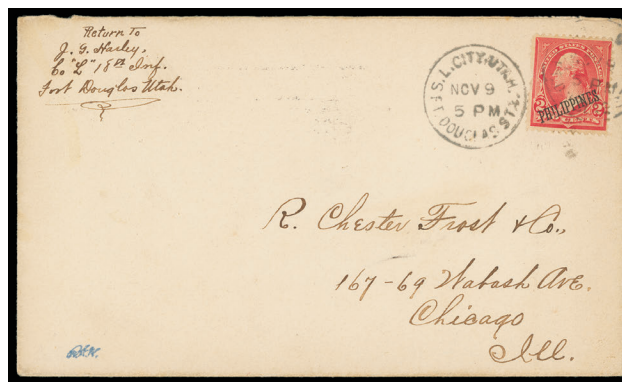 Return To
J. G. Harley,
Co "L" 18th Inf.
Fort Douglas Utah.
S. L. CITY, UTAH.
NOV 9
5 PM
FT. DOUGLAS STA.
PHILIPPINES
2 CENTS 2
R. Chester Frost & Co.,
167-69 Wabash Ave.
Chicago
Ill.